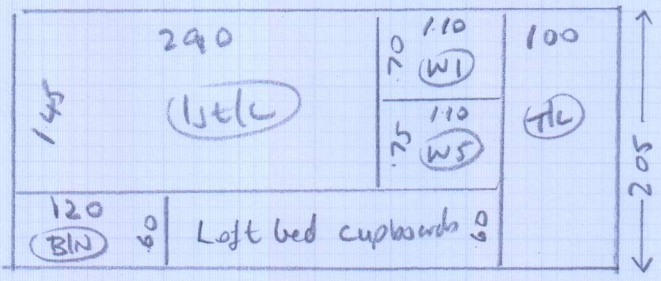 290
145
1.10
.70
W1
1.10
.75
W5
100
T/L
205
120
B/N
60
Loft bed cupboards
60